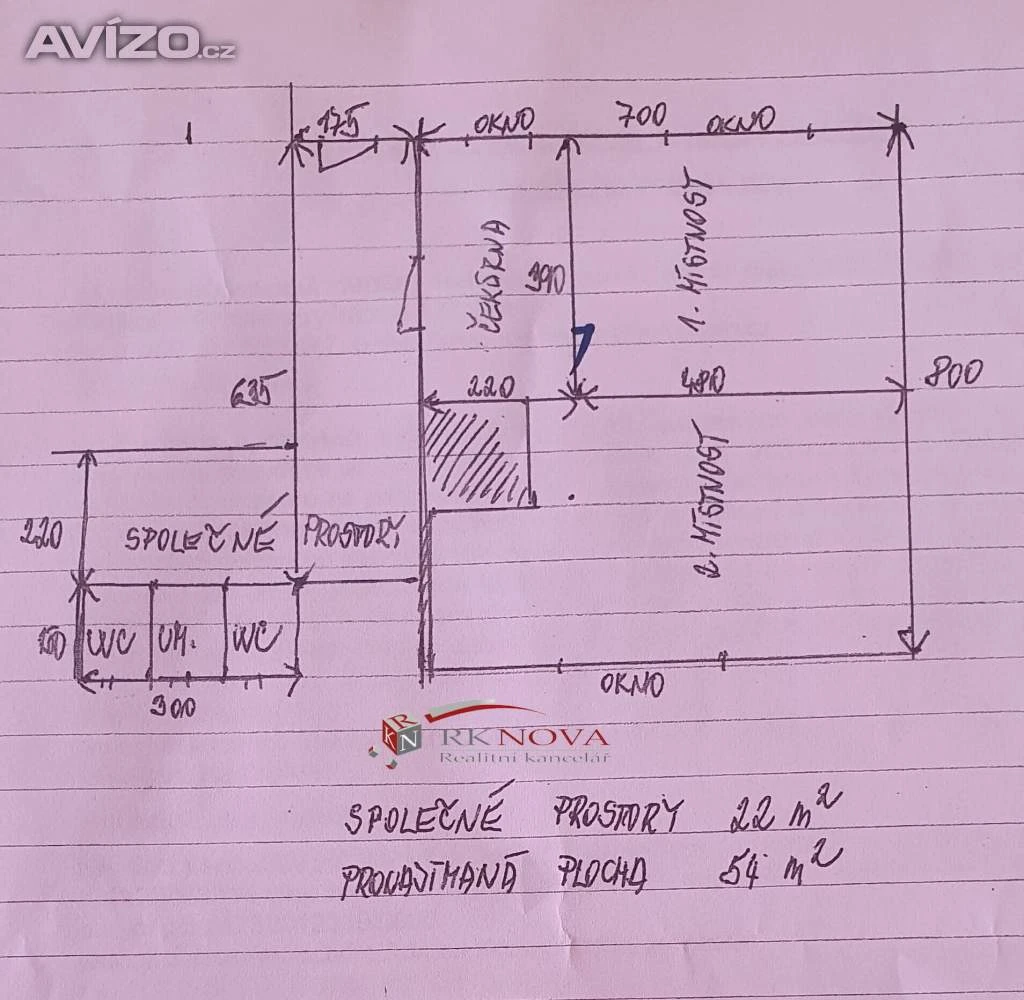 AVÍZO.cz
175
OKNO
700
OKNO
ČEKÁRNA
390
1. MÍSTNOST
635
220
480
800
2. MÍSTNOST
220
SPOLEČNÉ PROSTORY
150
WC
UM.
WC
300
OKNO
RKN
RK NOVA
Realitní kancelář
SPOLEČNÉ PROSTORY 22 m²
PRONAJÍMANÁ PLOCHA 54 m²